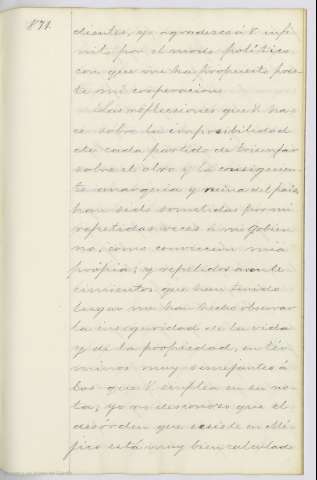 871.
dientes, yo agradesco á V infi-
nito por el modo político
con que me ha propuesto pres-
te mi cooperacion.
Las reflecciones que V. ha-
ce sobre la imposibilidad
de cada partido de triunfar
sobre el otro y la consiguien-
te anarquía y ruina del pais,
han sido sometidas por mi
repetidas veces á mi Gobier-
no, como conviccion mia
própia; y repetidos aconte-
cimientos que han tenido
lugar me han hecho observar
la inseguridad de la vida
y de la propiedad, en tér-
minos muy semejantes á
los que V. emplea en su no-
ta; yo no desconosco que el
desórden que ecsiste en Mé-
jico está muy bien calculado